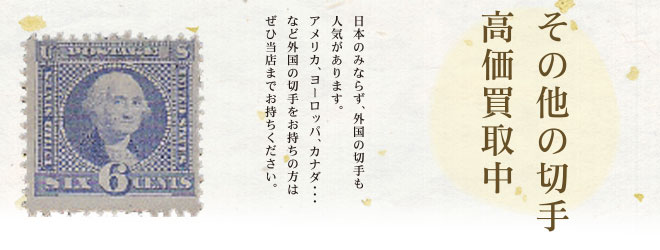 その他の切手
高価買取中
日本のみならず、外国の切手も
人気があります。
アメリカ、ヨーロッパ、カナダ・・・
など外国の切手をお持ちの方は
ぜひ当店までお持ちください。
U POSTAGE S
SIX 6 CENTS